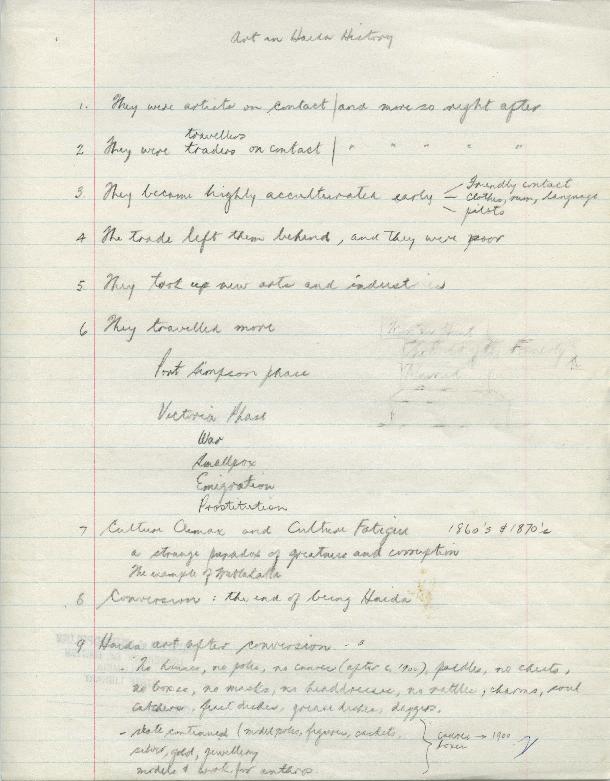 Art in Haida History
1. They were artists on contact / and more so right after
travellers
2 They were traders on contact / " " " " "
3 They became highly acculturated early
Friendly contact
clothes, rum, language
pilots
4 The trade left them behind, and they were poor
5 They took up new arts and industries
6 They travelled more
Port Simpson phase
Victoria Phase
War
Smallpox
Emigration
Prostitution
7 Culture Climax and Culture Fatigue 1860's & 1870's
a strange paradox of greatness and corruption
The example of
8 Conversion : the end of being Haida
9 Haida art after conversion.
No houses, no poles, no canoes (after c. 1900), paddles, no chests,
no boxes, no masks, no headdresses, no rattles, charms, soul
catchers, feast dishes, grease dishes, daggers.
- slate continued (model poles, figures, caskets,
silver, gold, jewellery
models & work for anthros.
canoes → 1900
boxes